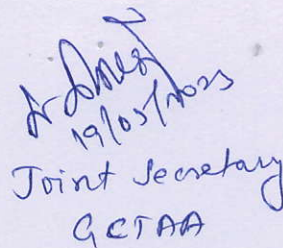 19/05/2023
Joint Secretary
GCTAA